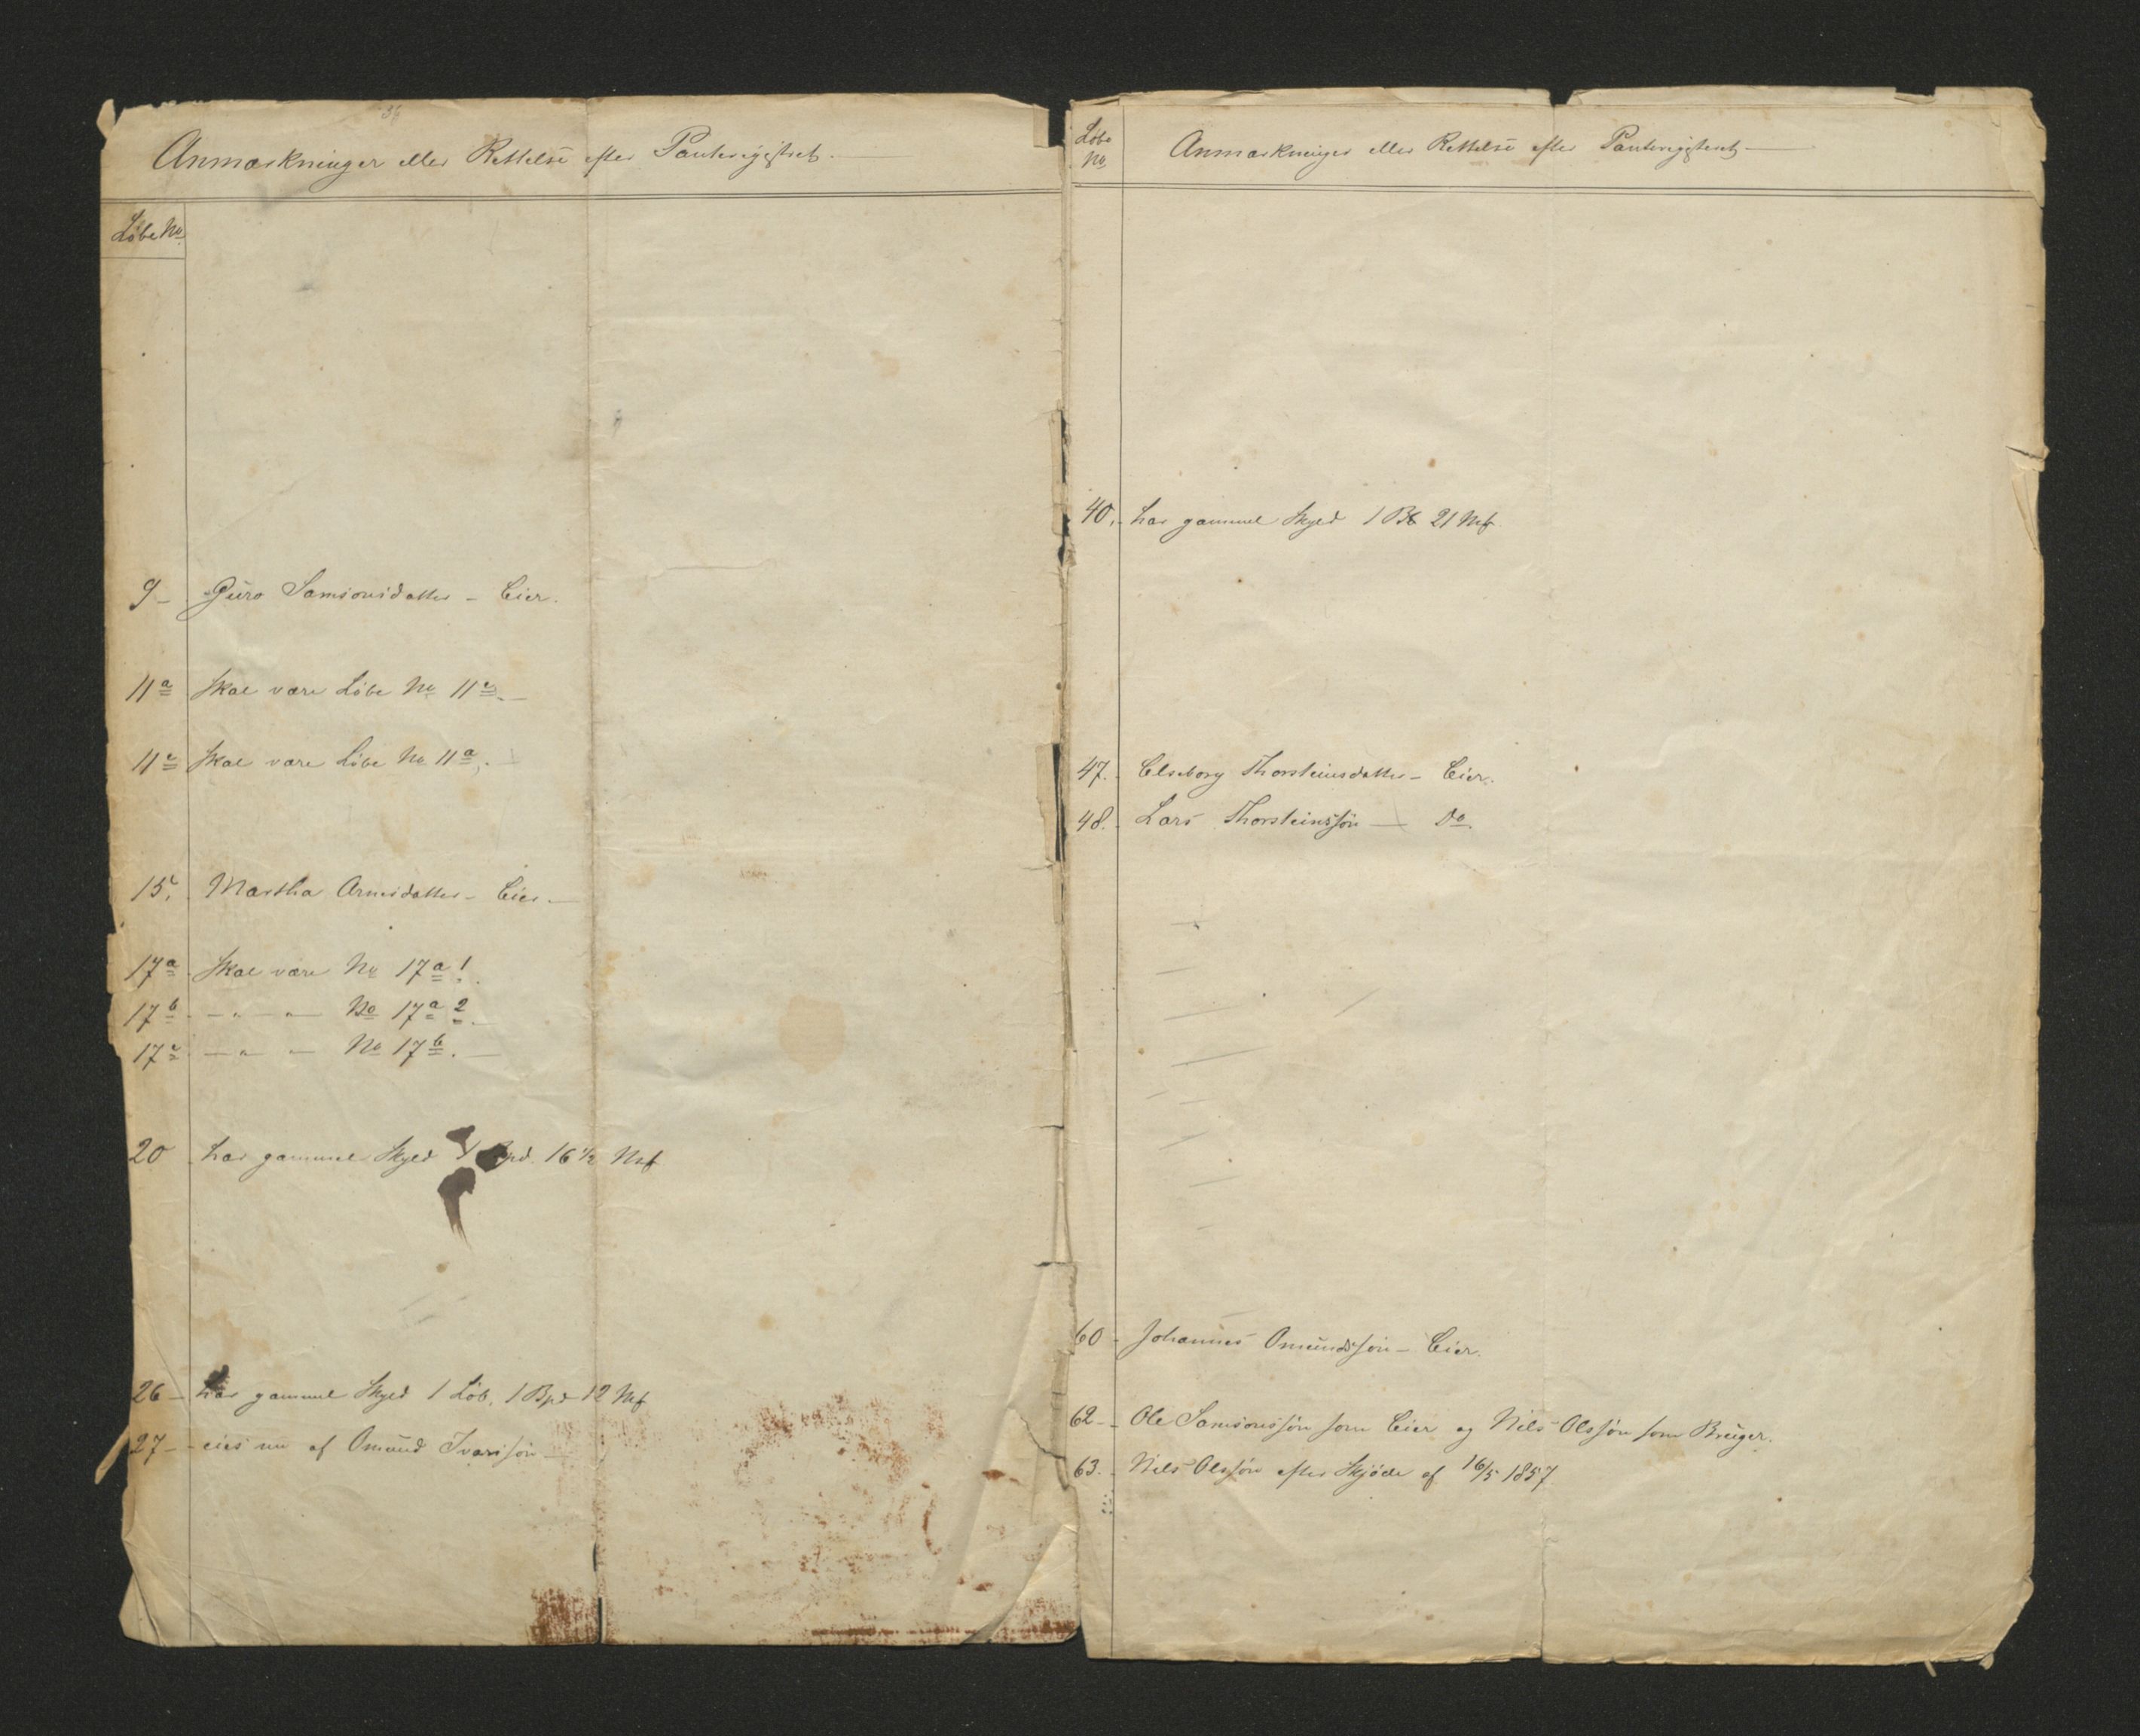 36
Anmærkninger eller Rettelse efter Panteregistret.
Löbe No
9 - Guro Samsonsdatter - Eier.
11a Skal være Löbe No 11c. -
11c Skal være Löbe No 11a. -
15c. Martha Arnesdatter - Eier. -
17a Skal være No 17a 1.
17b - " - " - No 17a 2. -
17c - " - " - No 17b. -
20 har gammel Skyld 1 Bpd. 16 1/2 Mk
26 - har gammel Skyld 1 Löb, 1 Bpd 12 Mk
27 - eies nu af Omund Ivarssön -
Löbe No
Anmærkninger eller Rettelse efter Panteregisteret -
40. har gammel Skyld 1 B 21 Mk
47. Elseborg Thorsteinsdatter - Eier.
48. Lars Thorsteinssön - Do.
60 - Johannes Omundssön - Eier.
62 - Ole Samsonssön som Eier og Nils Olssön som Bruger.
63. Nils Olssön efter Skjöde af 16/5 1857